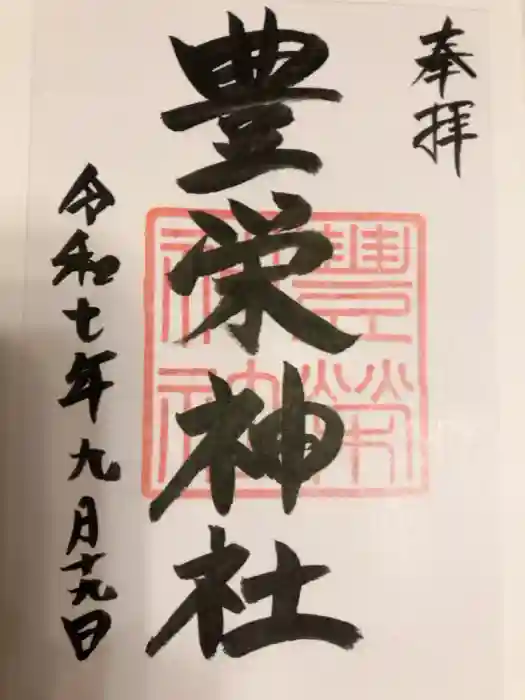 奉拝
豊栄神社
豊榮
神社
令和七年九月十九日